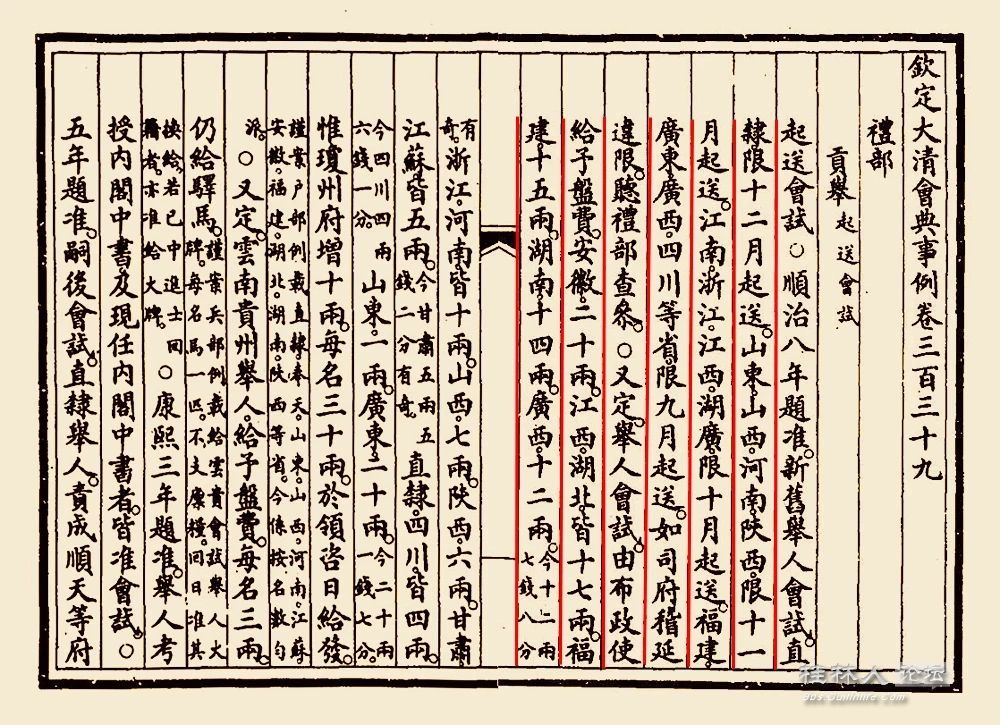 欽定大清會典事例卷三百三十九
禮部
貢舉起送會試
起送會試○順治八年題准新舊舉人會試直
隸限十二月起送山東山西河南陝西限十一
月起送江南浙江江西湖廣限十月起送福建
廣東廣西四川等省限九月起送如司府稽延
違限聽禮部查叅○又定舉人會試由布政使
給予盤費安徽二十兩江西湖北皆十七兩福
建十五兩湖南十四兩廣西十二兩今十二兩
七錢八分
有
奇浙江河南皆十兩山西七兩陝西六兩甘肅
江蘇皆五兩今甘肅五兩五
錢二分有奇直隸四川皆四兩
今四川四兩
六錢一分山東一兩廣東二十兩今二十兩
一錢七分
惟瓊州府增十兩每名三十兩於領咨日給發
謹案戶部例載直隸奉天山東山西河南江蘇
安徽福建湖北湖南陝西等省今係按名數勻
派○又定雲南貴州舉人給予盤費每名三兩
仍給驛馬謹案兵部例載給雲貴會試舉人火
牌每名馬一匹不支廩糧回日准其
換給若已中進士回
籍者亦准給火牌○康熙三年題准舉人考
授內閣中書及現任內閣中書者皆准會試○
五年題准嗣後會試直隸舉人責成順天等府
桂林人论坛